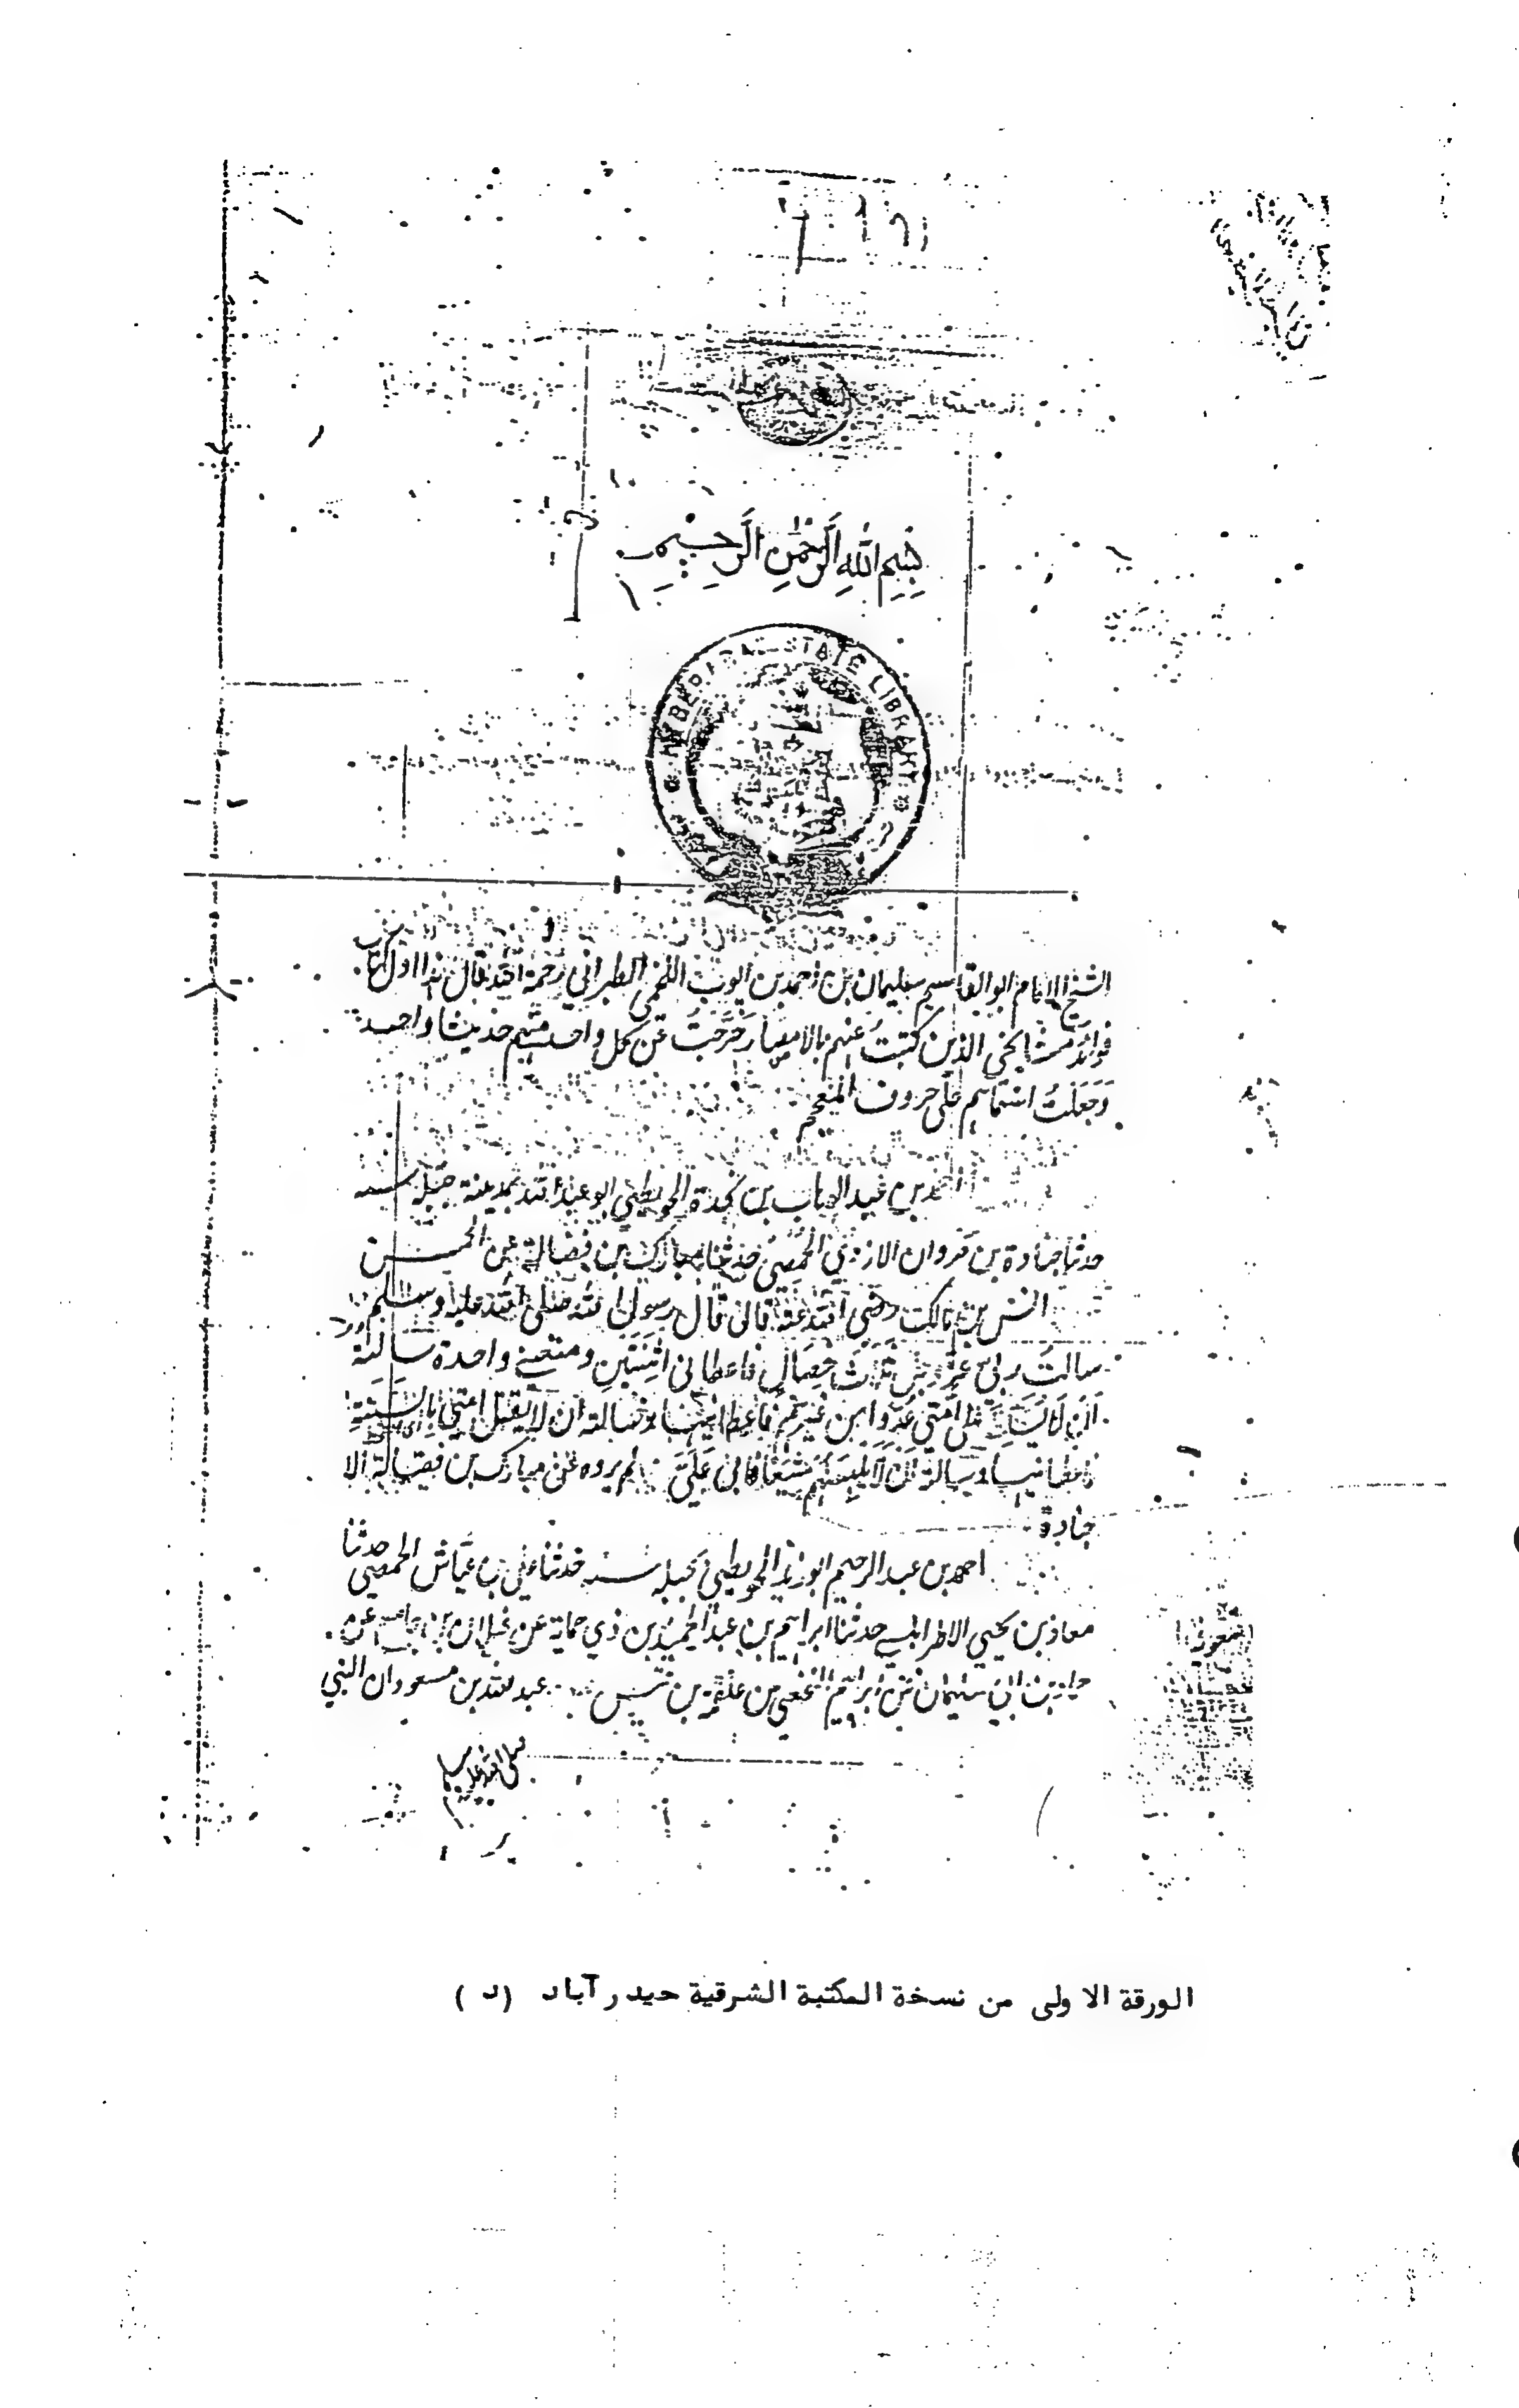 بِسْمِ اللهِ الرَّحْمٰنِ الرَّحِيْمِ
HYDERABAD STATE LIBRARY
الشيخ الامام ابو القاسم سليمان بن احمد بن ايوب اللخمي الطبراني رحمه الله قال هذا اول كتاب
فوائد مشايخي الذين كتبت عنهم بالامصار خرجت عن كل واحد منهم حديثا واحدا
وجعلت اسماءهم على حروف المعجم
احمد بن عبد الوهاب بن نجدة الحوطي ابو عبد الله بمدينة جبلة سنة
حدثنا جنادة بن مروان الازدي الحمصي حدثنا مبارك بن فضالة عن الحسن
انس بن مالك رضي الله عنه قال قال رسول الله صلى الله عليه وسلم
سالت ربي عز وجل ثلاث خصال فاعطاني اثنتين ومنعني واحدة سالته
ان لا يسلط على امتي عدوا من غيرهم فاعطانيها وسالته ان لا يقتل امتي بالسنة
فاعطانيها وسالته ان لا يلبسهم شيعا فابى علي لم يروه عن مبارك بن فضالة الا
جنادة
احمد بن عبد الرحيم ابو زيد الحوطي بجبلة سنة حدثنا علي بن عياش الحمصي حدثنا
معاذ بن يحيى الاطرابلسي حدثنا ابراهيم بن عبد الحميد بن ذي حماية عن غيلان بن جامع عن
حماد بن ابي سليمان عن ابراهيم النخعي عن علقمة بن قيس عبد الله بن مسعود ان النبي
صلى الله عليه وسلم
الورقة الاولى من نسخة المكتبة الشرقية حيدر آباد (د)